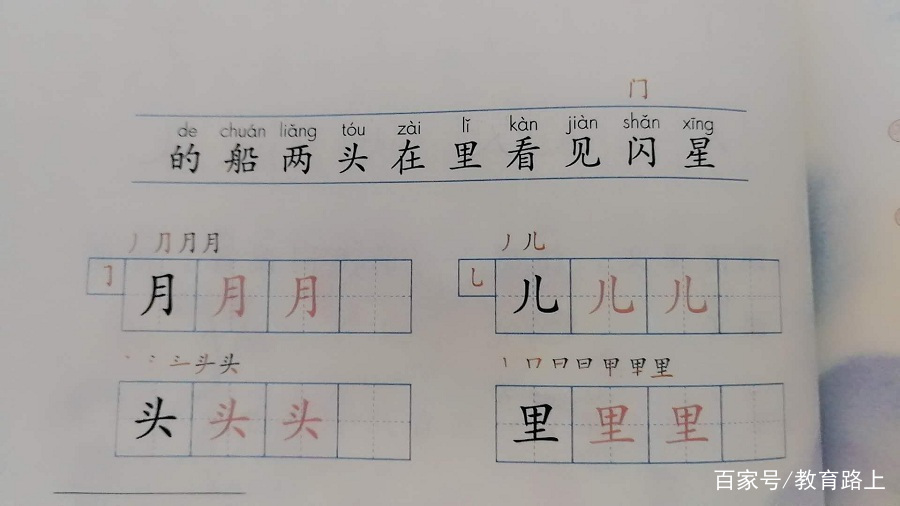 门
de chuán liǎng tóu zài lǐ kàn jiàn shǎn xīng
的 船 两 头 在 里 看 见 闪 星
丿 ⺆ 月 月
丿 儿
㇆ 月 月 月
乚 儿 儿 儿
丶 ⺀ 头 头
丨 口 曰 日 甲 里
头 头 头
里 里 里
百家号/教育路上